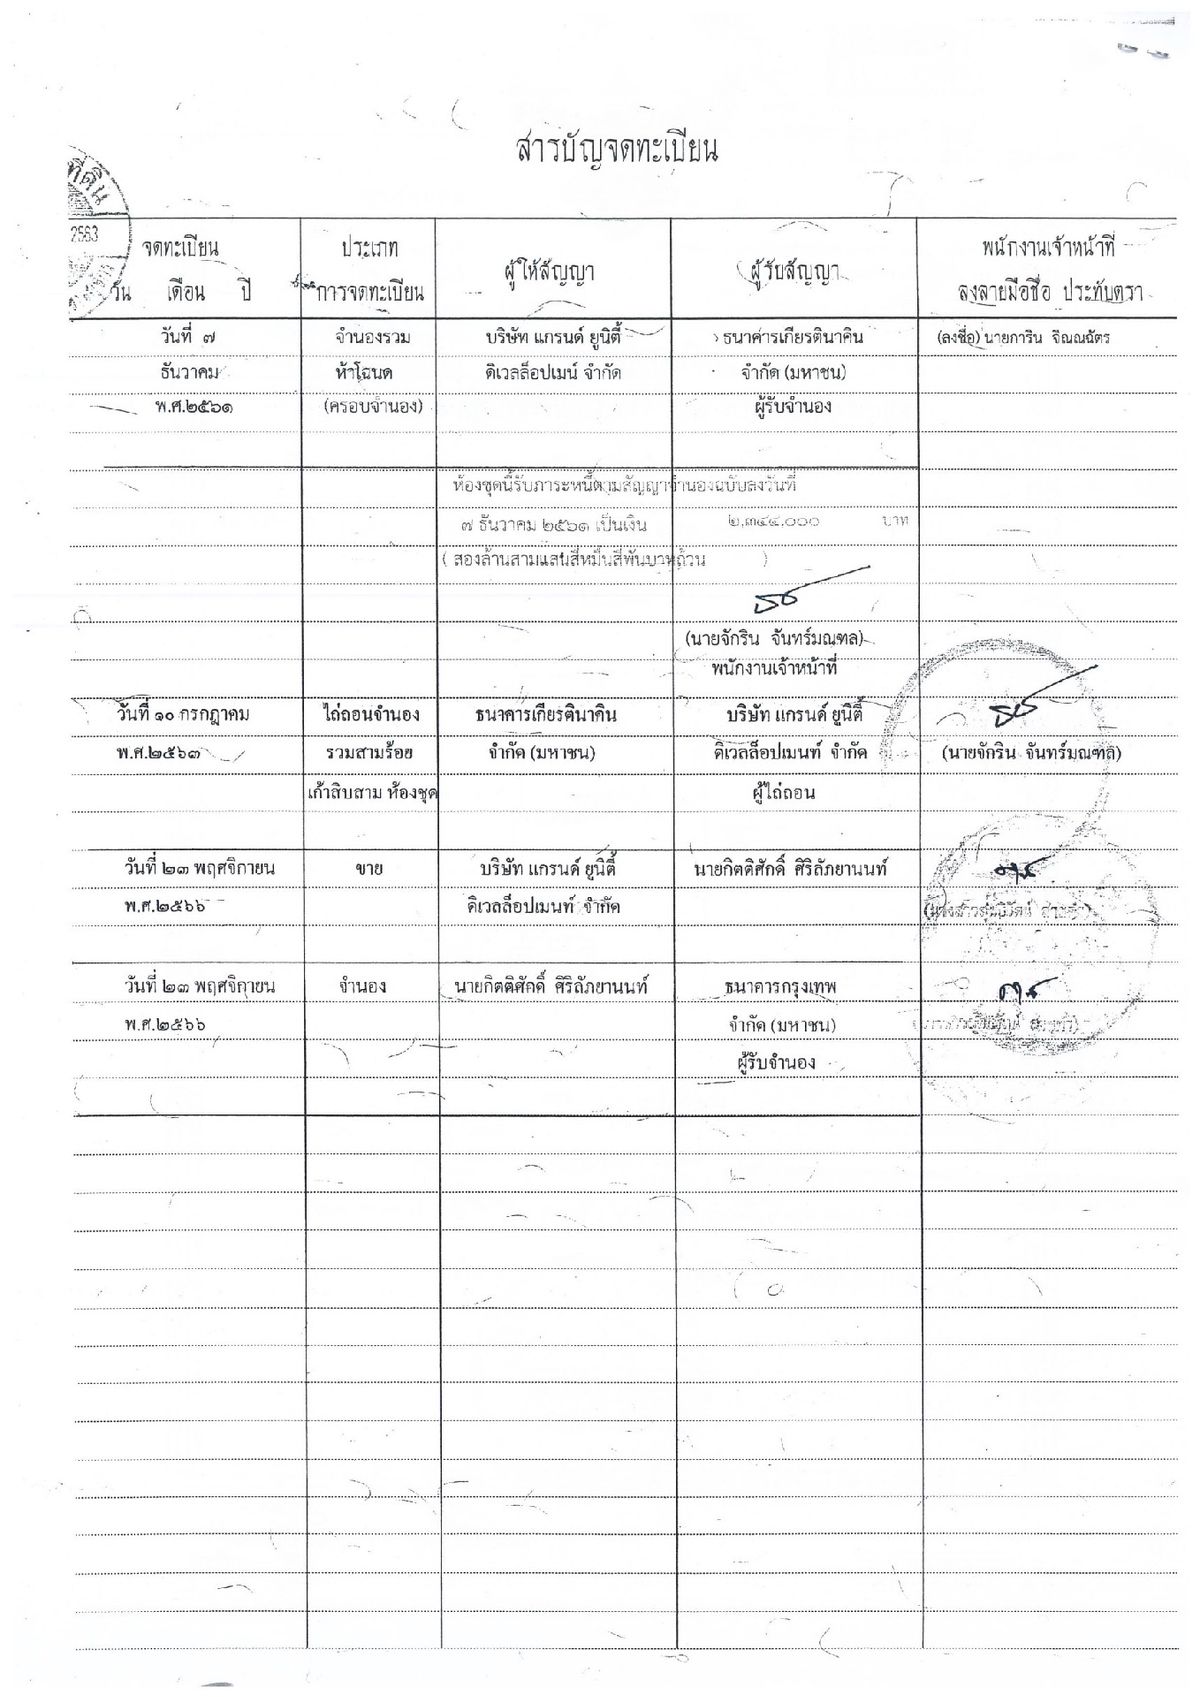 สารบัญจดทะเบียน
ที่ดิน
2563
จดทะเบียน
วัน เดือน ปี
ประเภท
การจดทะเบียน
ผู้ให้สัญญา
ผู้รับสัญญา
พนักงานเจ้าหน้าที่
ลงลายมือชื่อ ประทับตรา
วันที่ ๗ จำนองรวม บริษัท แกรนด์ ยูนิตี้ ธนาคารเกียรตินาคิน (ลงชื่อ) นายการิน จิณณฉัตร
ธันวาคม ห้าโฉนด ดิเวลล็อปเมน์ จำกัด จำกัด (มหาชน)
พ.ศ.๒๕๖๑ (ครอบจำนอง) ผู้รับจำนอง
ห้องชุดนี้รับภาระหนี้ตามสัญญาจำนองฉบับลงวันที่
๗ ธันวาคม ๒๕๖๑ เป็นเงิน ๒,๓๔๔,๐๐๐ บาท
( สองล้านสามแสนสี่หมื่นสี่พันบาทถ้วน )
(นายจักริน จันทร์มณฑล)
พนักงานเจ้าหน้าที่
วันที่ ๑๐ กรกฎาคม ไถ่ถอนจำนอง ธนาคารเกียรตินาคิน บริษัท แกรนด์ ยูนิตี้
พ.ศ.๒๕๖๓ รวมสามร้อย จำกัด (มหาชน) ดิเวลล็อปเมนท์ จำกัด (นายจักริน จันทร์มณฑล)
เก้าสิบสาม ห้องชุด ผู้ไถ่ถอน
วันที่ ๒๓ พฤศจิกายน ขาย บริษัท แกรนด์ ยูนิตี้ นายกิตติศักดิ์ ศิริลัภยานนท์
พ.ศ.๒๕๖๖ ดิเวลล็อปเมนท์ จำกัด
วันที่ ๒๓ พฤศจิกายน จำนอง นายกิตติศักดิ์ ศิริลัภยานนท์ ธนาคารกรุงเทพ
พ.ศ.๒๕๖๖ จำกัด (มหาชน)
ผู้รับจำนอง